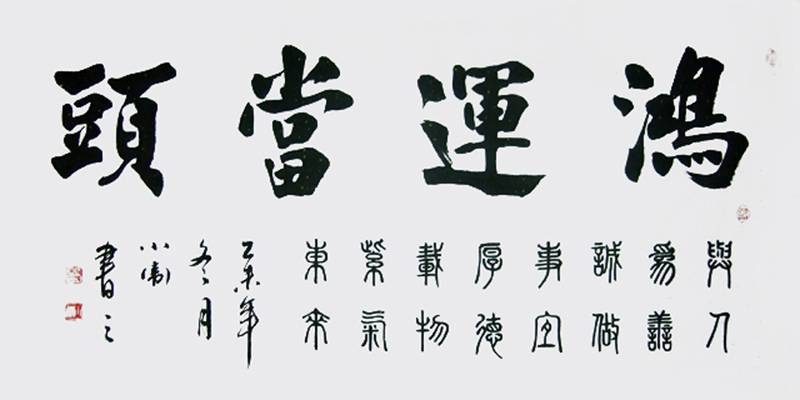 鴻運當頭
與人
爲善
誠做
事宜
厚德
載物
紫氣
東來
乙未年
冬月
小
書之